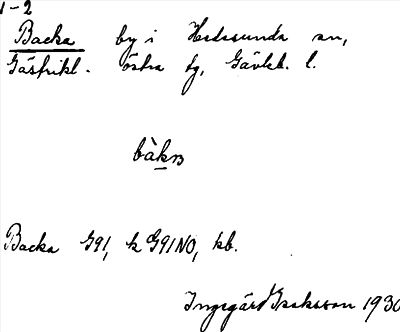 1-2
Backa by i Hedesunda sn,
Gästrikl. östra tg, Gävleb. l.
bàkɴ
Backa G91, k G91NO, kb.
Ingegärd Isaksson 1930